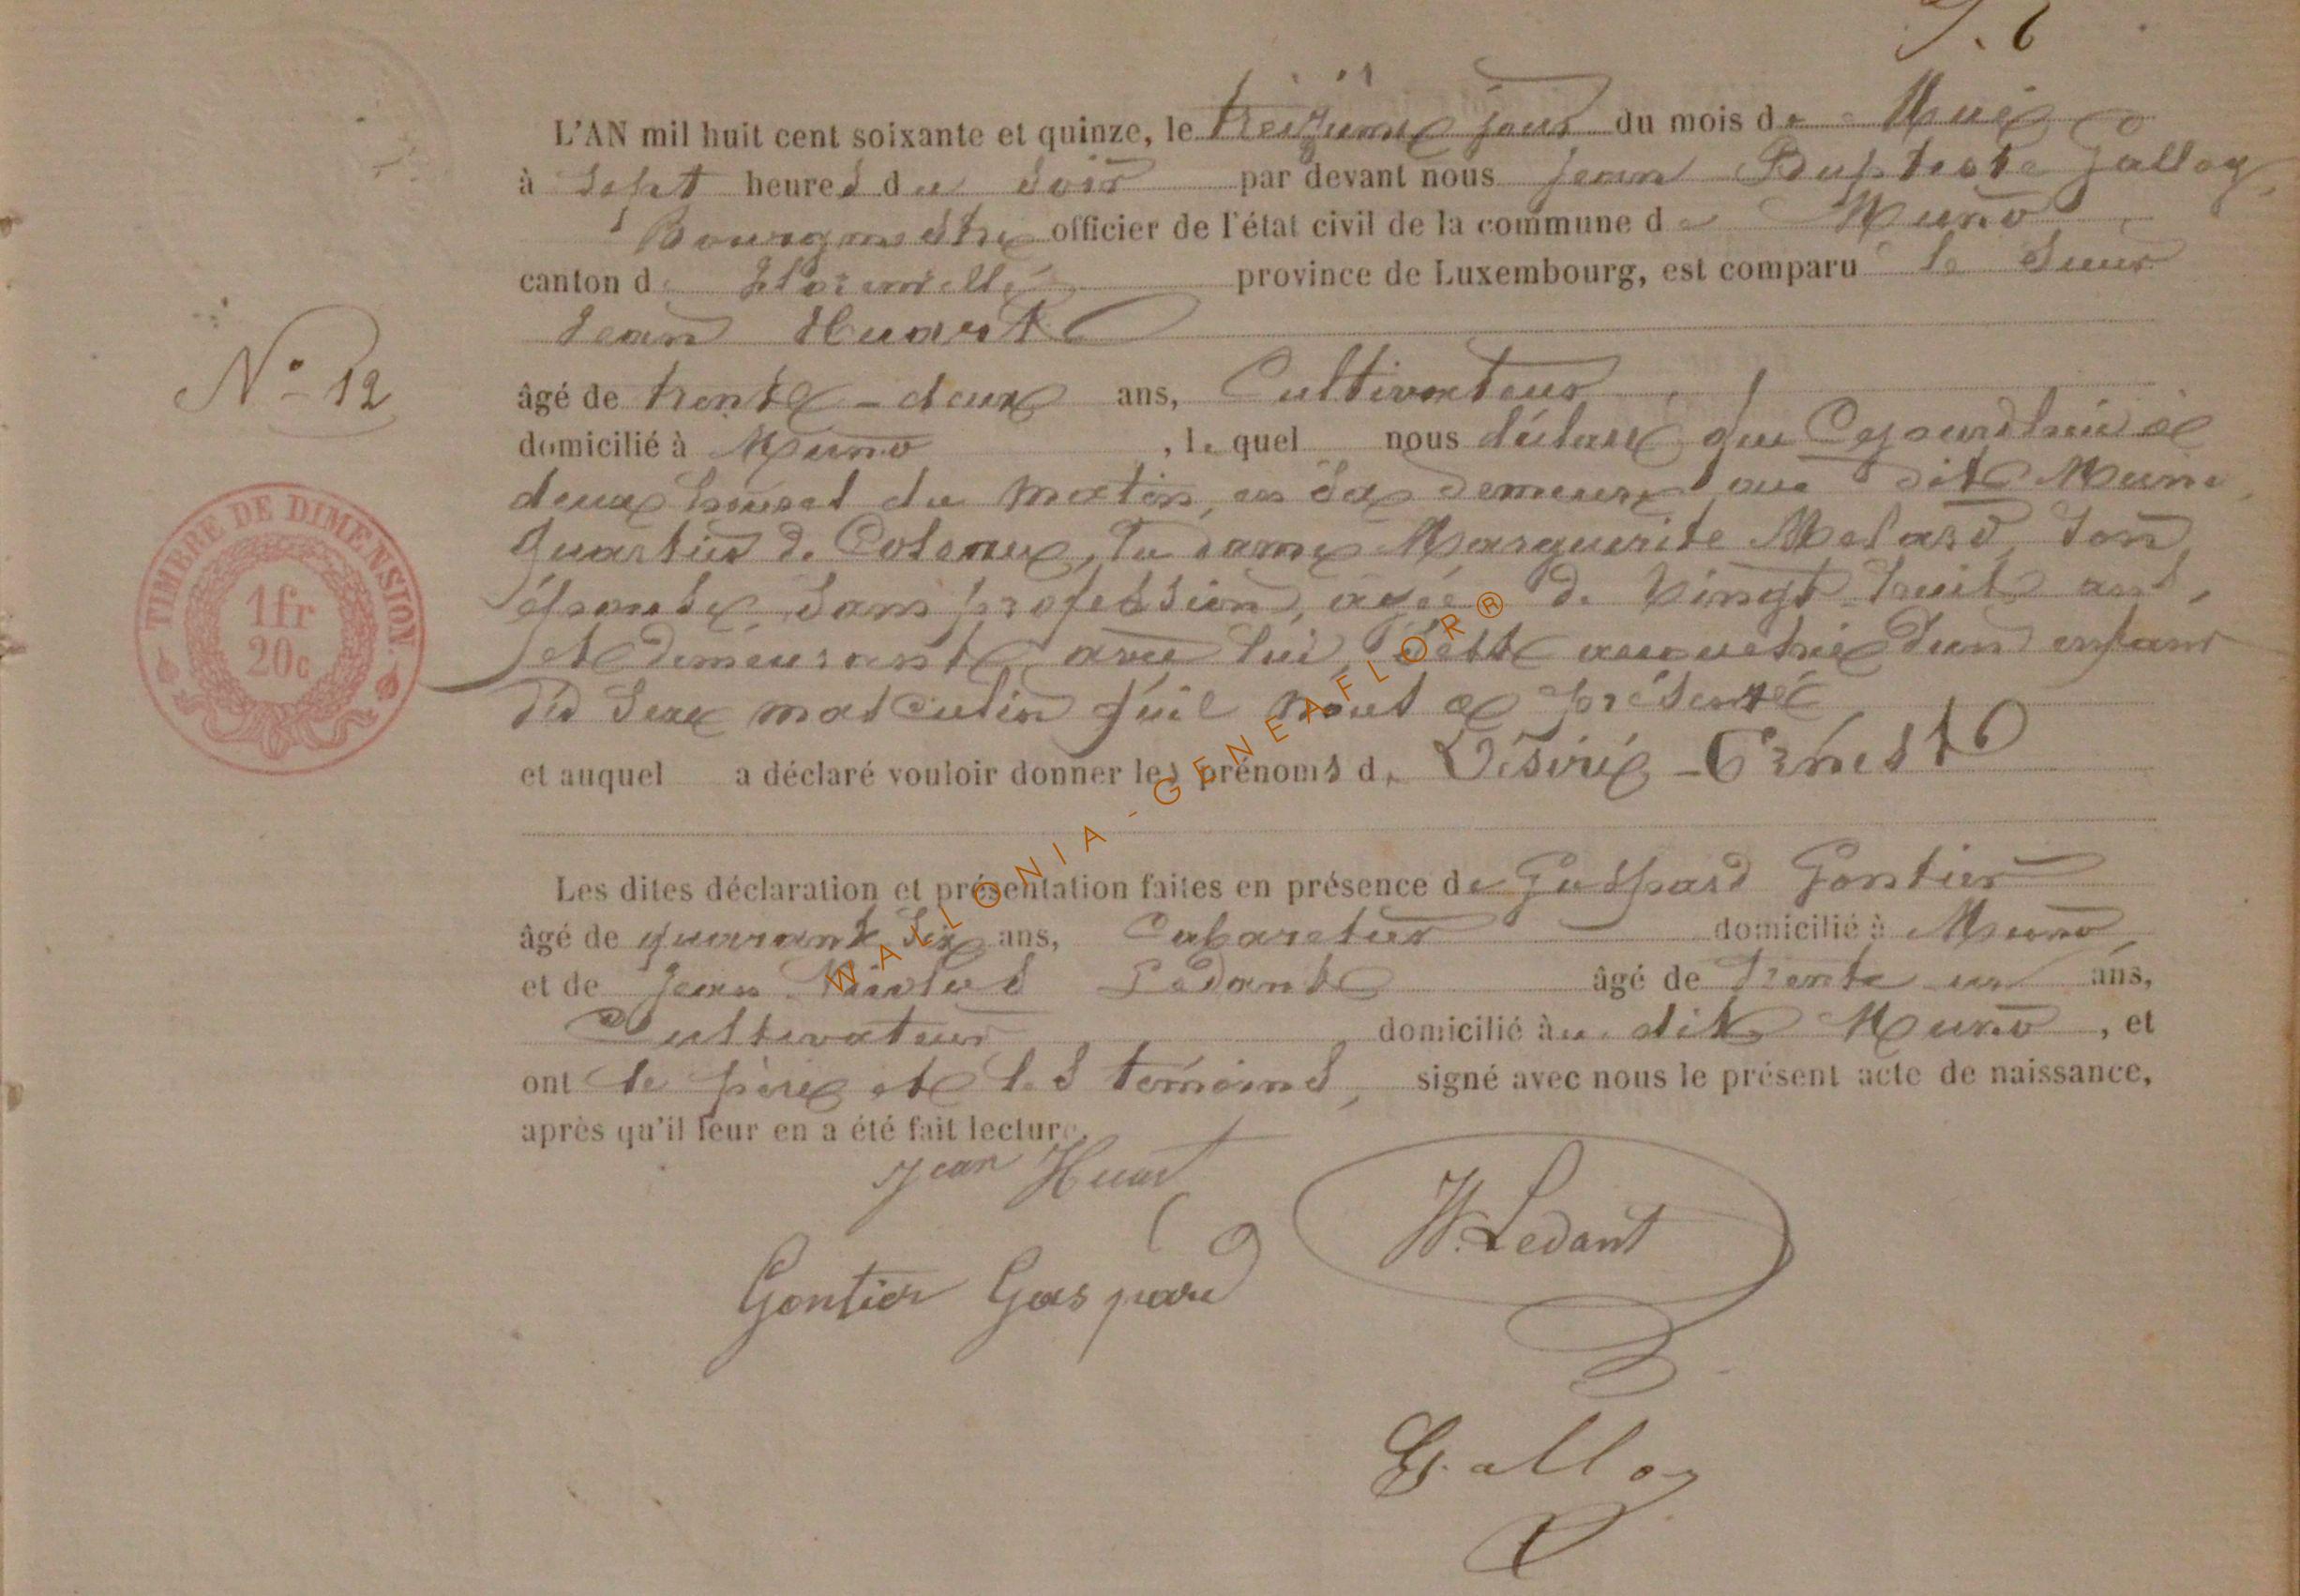 L'AN mil huit cent soixante et quinze, le treizième jour du mois de Mai
à sept heures du soir par devant nous Jean Baptiste Galloy,
Bourgmestre officier de l'état civil de la commune de Muno
canton de Florenville province de Luxembourg, est comparu le sieur
Jean Huart
N° 12
âgé de trente-deux ans, Cultivateur
domicilié à Muno, lequel nous déclare que Cejourdhui à
deux heures du matin, en sa demeure au dit Muno
quartier de, la dame Marguerite Melard, son
épouse, sans profession, agée de vingt-huit ans,
et demeurante avec lui, est accouchée d'un enfant
du sexe masculin qu'il nous a présenté
et auquel a déclaré vouloir donner les prénoms de Désiré-Ernest
TIMBRE DE DIMENSION
1 fr
20c
Les dites déclaration et présentation faites en présence de Gaspard Gontier
âgé de quarante six ans, Cabaretier domicilié à Muno,
et de Jean Nicolas Ledant âgé de trente un ans,
Cultivateur domicilié au dit Muno, et
ont le père et les témoins, signé avec nous le présent acte de naissance,
après qu'il leur en a été fait lecture.
Jean Huart
N. Ledant
Gontier Gaspard
Galloy
WALLONIA - GENEAFLOR®